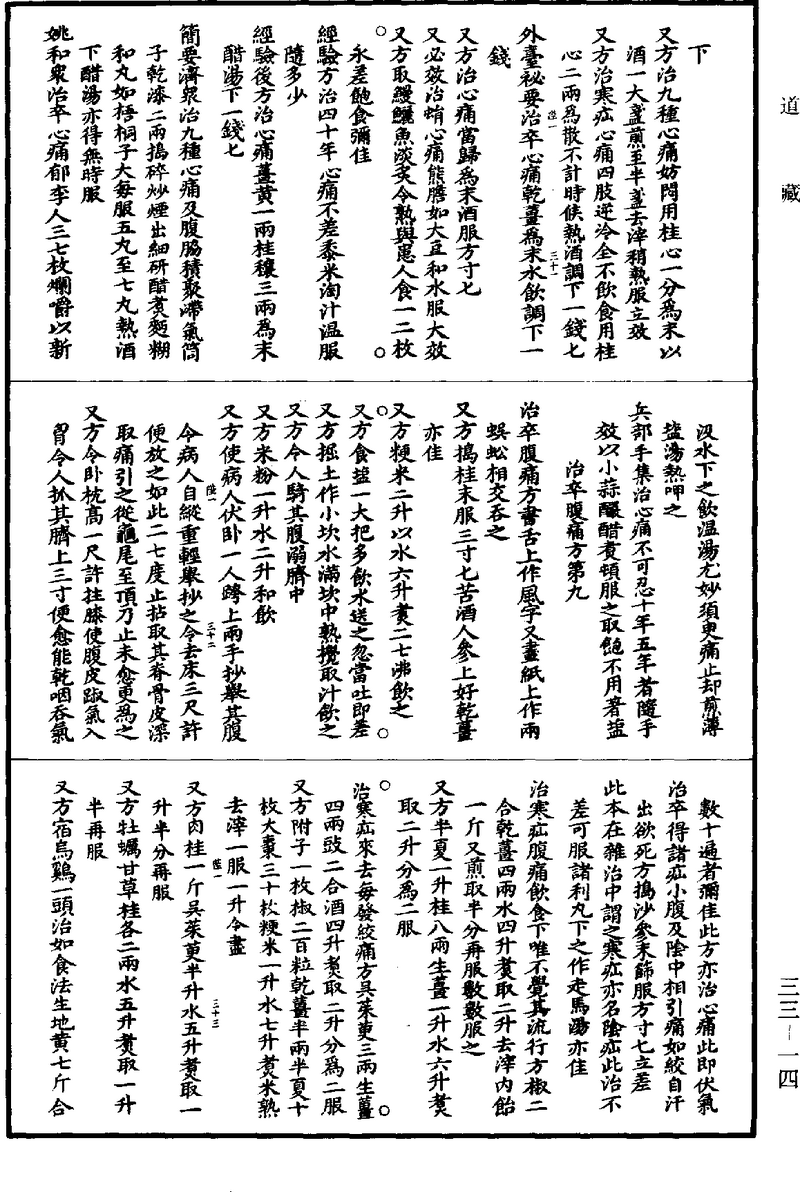 道藏
下
又方治九種心痛妨悶用桂心一分爲末以
酒一大盞煎至半盞去滓稍熱服立效
又方治寒疝心痛四肢逆冷全不飲食用桂
心二兩爲散不計時候熱酒調下一錢七
外臺祕要治卒心痛乾薑爲末水飲調下一
錢
又方治心痛當歸爲末酒服方寸七
又必效治蛕心痛熊膽如大豆和水服大效
又方取鰻鱺魚淡炙令熟與患人食一二枚
永差飽食彌佳
經驗方治四十年心痛不差黍米淘汁温服
隨多少
經驗後方治心痛薑黄一兩桂穰三兩爲末
醋湯下一錢七
簡要濟衆治九種心痛及腹脇積聚滯氣筒
子乾漆二兩搗碎炒煙出細研醋煮麪糊
和丸如梧桐子大每服五丸至七丸熱酒
下醋湯亦得無時服
姚和衆治卒心痛郁李人三七枚爛嚼以新
汲水下之飲温湯尤妙須臾痛止却煎薄
鹽湯熱呷之
兵部手集治心痛不可忍十年五年者隨手
效以小蒜釅醋煮頓服之取飽不用著鹽
治卒腹痛方第九
治卒腹痛方書舌上作風字又畫紙上作兩
蜈蚣相交吞之
又方搗桂末服三寸七苦酒人參上好乾薑
亦佳
又方粳米二升以水六升煮二七沸飲之
又方食鹽一大把多飲水送之忽當吐即差
又方掘土作小坎水滿坎中熟攪取汁飲之
又方令人騎其腹溺臍中
又方米粉一升水二升和飲
又方使病人伏卧一人跨上兩手抄舉其腹
令病人自縱重輕舉抄之令去床三尺許
便放之如此二七度止拈取其脊骨皮深
取痛引之從龜尾至頂乃止未愈更爲之
又方令卧枕高一尺許拄膝使腹皮踧氣入
胷令人抓其臍上三寸便愈能乾咽吞氣
數十遍者彌佳此方亦治心痛此即伏氣
治卒得諸疝小腹及陰中相引痛如絞自汗
出欲死方搗沙參末篩服方寸七立差
此本在雜治中謂之寒疝亦名陰疝此治不
差可服諸利丸下之作走馬湯亦佳
治寒疝腹痛飲食下唯不覺其流行方椒二
合乾薑四兩水四升煮取二升去滓内飴
一斤又煎取半分再服數數服之
又方半夏一升桂八兩生薑一升水六升煮
取二升分爲二服
治寒疝來去每發絞痛方吳茱萸三兩生薑
四兩豉二合酒四升煮取二升分爲二服
又方附子一枚椒二百粒乾薑半兩半夏十
枚大棗三十枚粳米一升水七升煮米熟
去滓一服一升令盡
又方肉桂一斤吳茱萸半升水五升煮取一
升半分再服
又方牡蠣甘草桂各二兩水五升煮取一升
半再服
又方宿烏鷄一頭治如食法生地黄七斤合
三三—一四